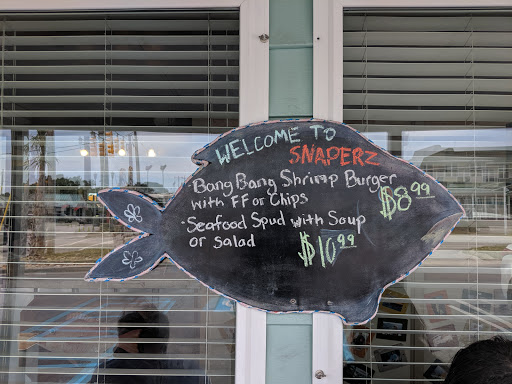 WELCOME TO
SNAPERZ
·Bang Bang Shrimp Burger
with FF or Chips
$8.99
·Seafood Spud with Soup
or salad
$10.99